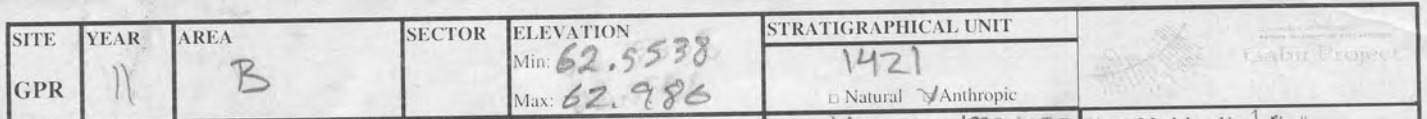 SITE YEAR AREA SECTOR ELEVATION STRATIGRAPHICAL UNIT
GPR 11 B Min: 62.5538 1421
Max: 62.986 □ Natural ☑ Anthropic
Gabii Project